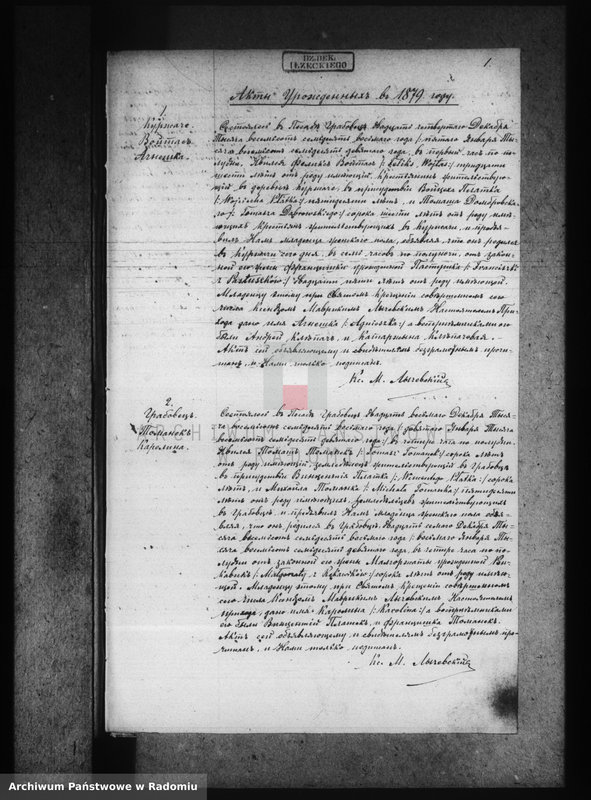 DZ.DEK.
IŁŻECKIEGO
1
Акты Урожденныхъ въ 1879 году.
1.
Куржаче.
Войтасъ
Агнешка.
Состоялось въ Посадѣ Грабовецъ Двадцать четвертаго Декабря
Тысяча восемьсотъ семьдесятъ восьмаго года /: пятаго Января Ты-
сяча восемьсотъ семьдесятъ девятаго года, въ первый часъ по по-
лудни. Явился Феликсъ Войтасъ /: Feliks Wojtas :/ тридцати
шести лѣтъ отъ роду имѣющій, крестьянинъ жительствую-
щій въ деревнѣ Куржаче, въ присутствіи Войцеха
/: Wojciecha :/ пятидесяти лѣтъ, и Томаша Домбровска-
го /: Tomasza Dąbrowskiego :/ сорока шести лѣтъ отъ роду имѣ-
ющихъ крестьянъ жительствующихъ въ Куржачи, и предъя-
вилъ Намъ младенца женскаго пола, объявляя, что онъ родился
въ Куржачи сего дня, въ семь часовъ по полуночи, отъ закон-
ной его жены Францишки урожденной
Двадцати пяти лѣтъ отъ роду имѣющей.
Младенцу этому при Святомъ Крещеніи совершенномъ сего
числа Ксендзомъ Маврикіемъ Лычевскимъ Настоятелемъ При-
хода дано имя Агнешка /: Agnieszka :/ а воспріемниками его
были Андрей и Катаржина
Актъ сей объявляющему и свидѣтелямъ безграмотнымъ прочи-
танъ, и Нами только подписанъ.
Кс. М. Лычевскій
2.
Грабовецъ.
Томанекъ
Каролина.
Состоялось въ Посадѣ Грабовецъ Двадцать восьмаго Декабря Тыся-
ча восемьсотъ семьдесятъ восьмаго года /: девятаго Января Тысяча
восемьсотъ семьдесятъ девятаго года :/ въ четыре часа по полудни.
Явился Томашъ Томанекъ /: Tomasz Tomanek :/ сорока лѣтъ
отъ роду имѣющій, земледѣлецъ жительствующій въ Грабовцѣ
въ присутствіи Винцентія /: Wincentego :/ сорока
лѣтъ, и Михала Томанка /: Michała Tomanka :/ пятидесяти
лѣтъ отъ роду имѣющихъ, земледѣльцевъ жительствующихъ
въ Грабовцѣ, и предъявилъ Намъ младенца женскаго пола объя-
вляя, что онъ родился въ Грабовцѣ Двадцать седьмаго Декабря Ты-
сяча восемьсотъ семьдесятъ восьмаго года /: восьмаго Января Ты-
сяча восемьсотъ семьдесятъ девятаго года, въ четыре часа по по-
лудни отъ законной его жены Малгоржаты урожденной
/: Małgorzaty :/ сорока лѣтъ отъ роду имѣю-
щей. Младенцу этому при Святомъ крещеніи совершенномъ
сего числа Ксендзомъ Маврикіемъ Лычевскимъ Настоятелемъ
прихода, дано имя Каролина /: Karolina :/ а воспріемниками
его были Винцентій и Францишка Томанекъ.
Актъ сей объявляющему и свидѣтелямъ безграмотнымъ про-
читанъ, и Нами только подписанъ.
Кс. М. Лычевскій
Archiwum Państwowe w Radomiu